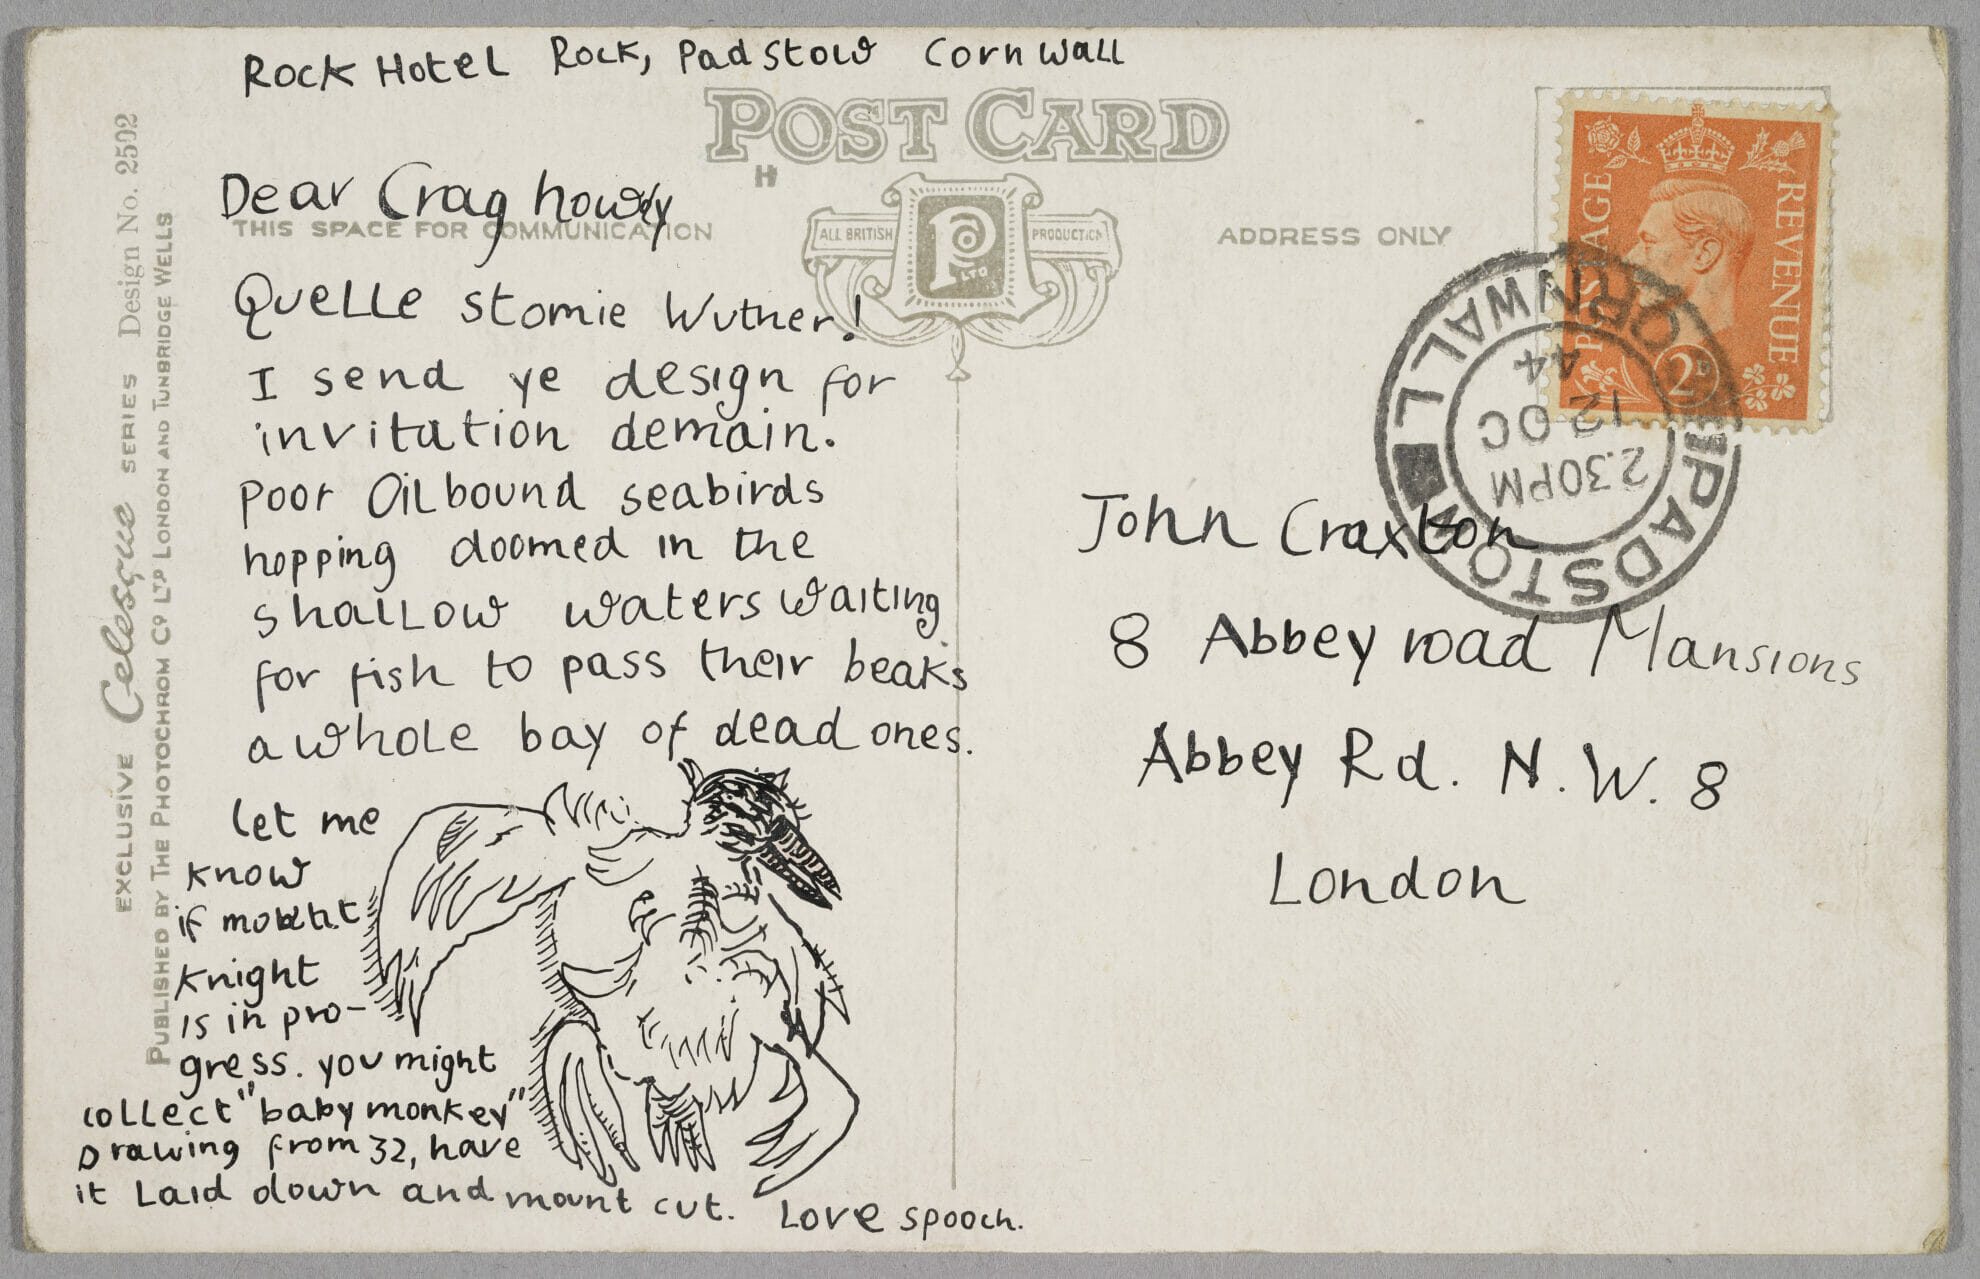 Rock Hotel Rock, Padstow Cornwall
POST CARD
H
Dear Crag howdy
THIS SPACE FOR COMMUNICATION
ALL BRITISH PRODUCTION
P LTD
ADDRESS ONLY
Quelle stomie Wuther!
I send ye design for
invitation demain.
Poor Oilbound seabirds
hopping doomed in the
shallow waters waiting
for fish to pass their beaks
a whole bay of dead ones.
let me
know
if
Knight
is in pro-
gress. you might
collect "baby monkey"
Drawing from 32, have
it Laid down and mount cut. Love spooch.
John Craxton
8 Abbey road Mansions
Abbey Rd. N.W. 8
London
POSTAGE REVENUE
2D
PADSTOW CORNWALL
2.30PM
12 OC
44
EXCLUSIVE Celesque SERIES Design No. 2502
PUBLISHED BY THE PHOTOCHROM CO LTD LONDON AND TUNBRIDGE WELLS